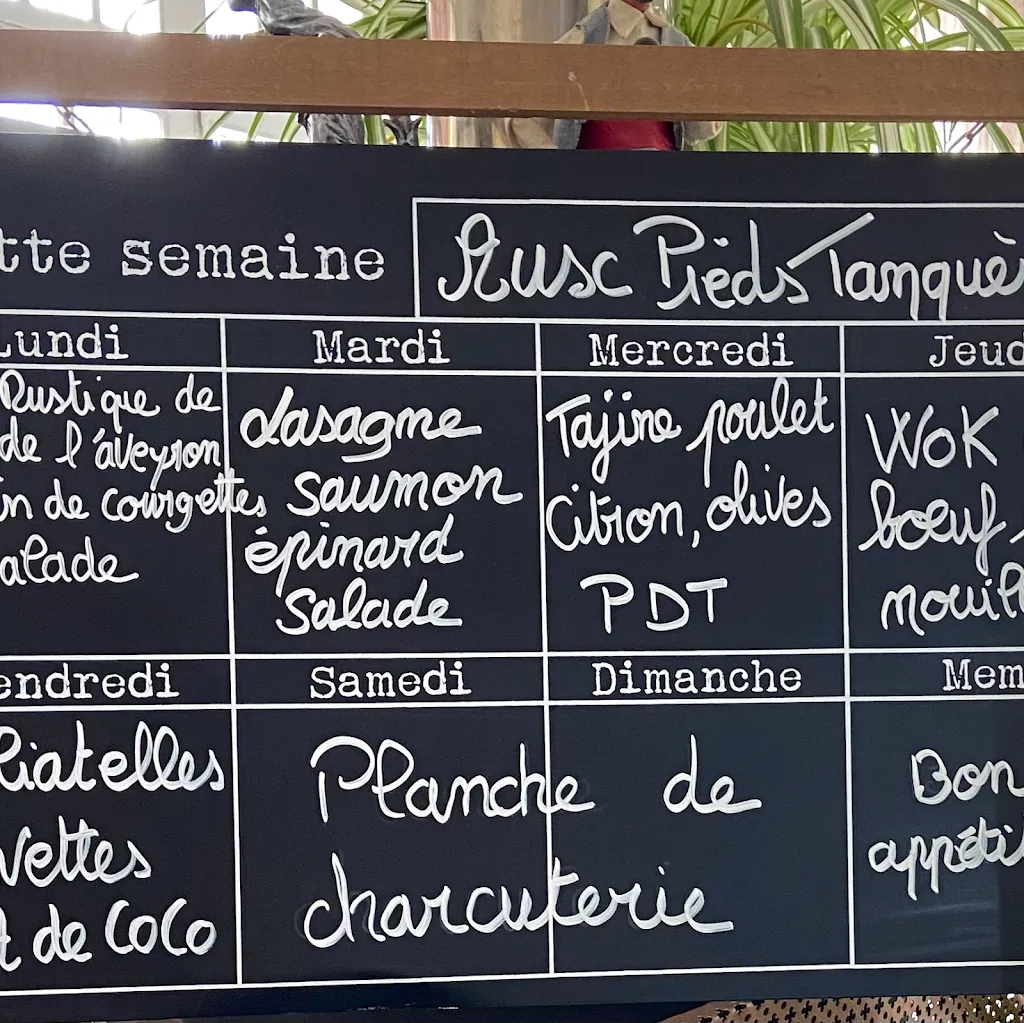 tte semaine
Ausc Pieds Tanquè
Lundi
Mardi
Mercredi
Jeud
Rustique de
de l'aveyron
in de courgettes
alade
Lasagne
saumon
épinard
salade
Tajine poulet
Citron, olives
PDT
WOK
boeuf
nouill
endredi
Samedi
Dimanche
Mem
liatelles
vettes
t de CoCo
Planche de
charcuterie
Bon
appéti